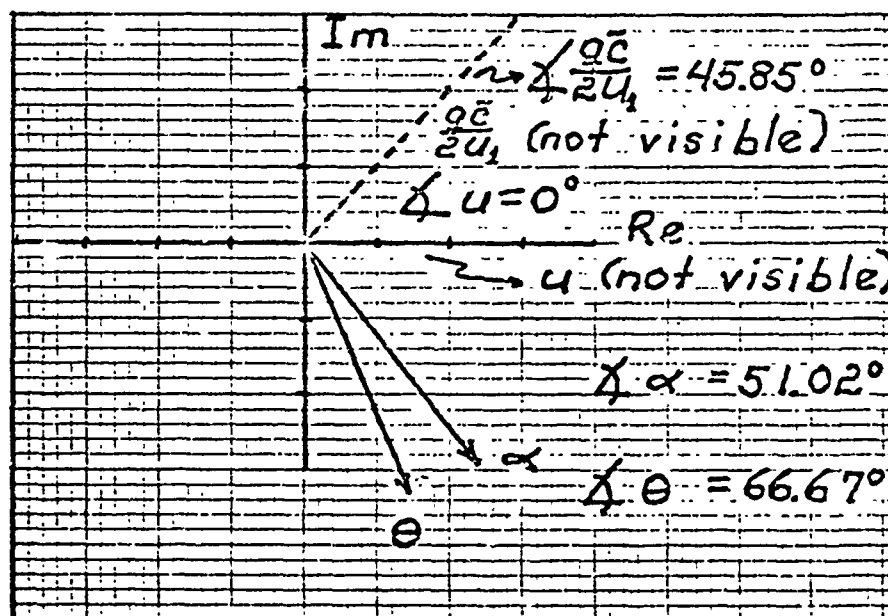 Im
∡ qc̄/2U₁ = 45.85°
qc̄/2U₁ (not visible)
∡ u = 0°
Re
u (not visible)
∡ α = 51.02°
α
∡ θ = 66.67°
θ